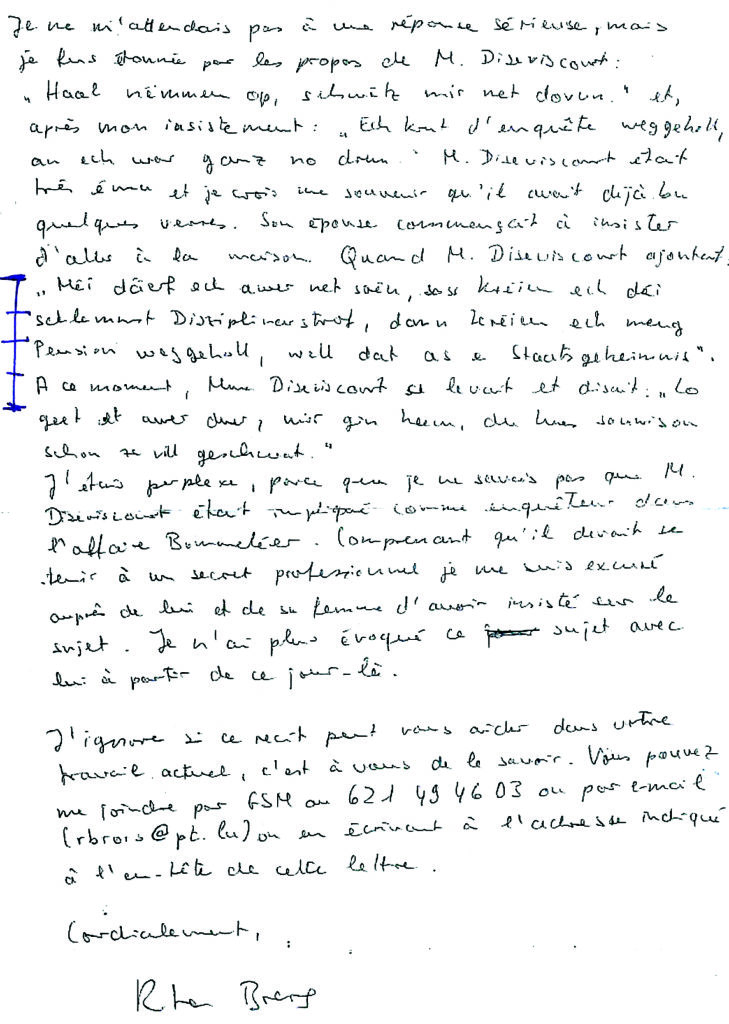 Je ne m'attendais pas à une réponse sérieuse, mais
je fus étonnée par les propos de M. Diseviscourt :
„Haal nëmmen op, schwätz mir net dovun." et,
après mon insistement : „Ech kout d'enquête weggeholl,
an ech war ganz no drun." M. Diseviscourt était
très ému et je crois me souvenir qu'il avait déjà bu
quelques verres. Son épouse commençait à insister
d'aller à la maison. Quand M. Diseviscourt ajoutait:
„Méi däerf ech awer net soën, soss kréien ech déi
schlemmst Disziplinarstrof, dann kréien ech meng
Pension weggeholl, well dat as e Staatsgeheimnis".
A ce moment, Mme Diseviscourt se levait et disait: „Lo
geet et awer duer, mir gin heem, du hues souwisou
schon ze vill geschwat."
J'étais perplexe, parce que je ne savais pas que M.
Diseviscourt était impliqué comme enquêteur dans
l'affaire Bommeleër. Comprenant qu'il devait se
tenir à un secret professionnel je me suis excusé
auprès de lui et de sa femme d'avoir insisté sur le
sujet. Je n'ai plus évoqué ce sujet avec
lui à partir de ce jour-là.
J'ignore si ce récit peut vous aider dans votre
travail actuel, c'est à vous de le savoir. Vous pouvez
me joindre par GSM au 621 49 46 03 ou par e-mail
(rbrois@pt.lu) ou en écrivant à l'adresse indiqué
à l'en-tête de cette lettre.
Cordialement,